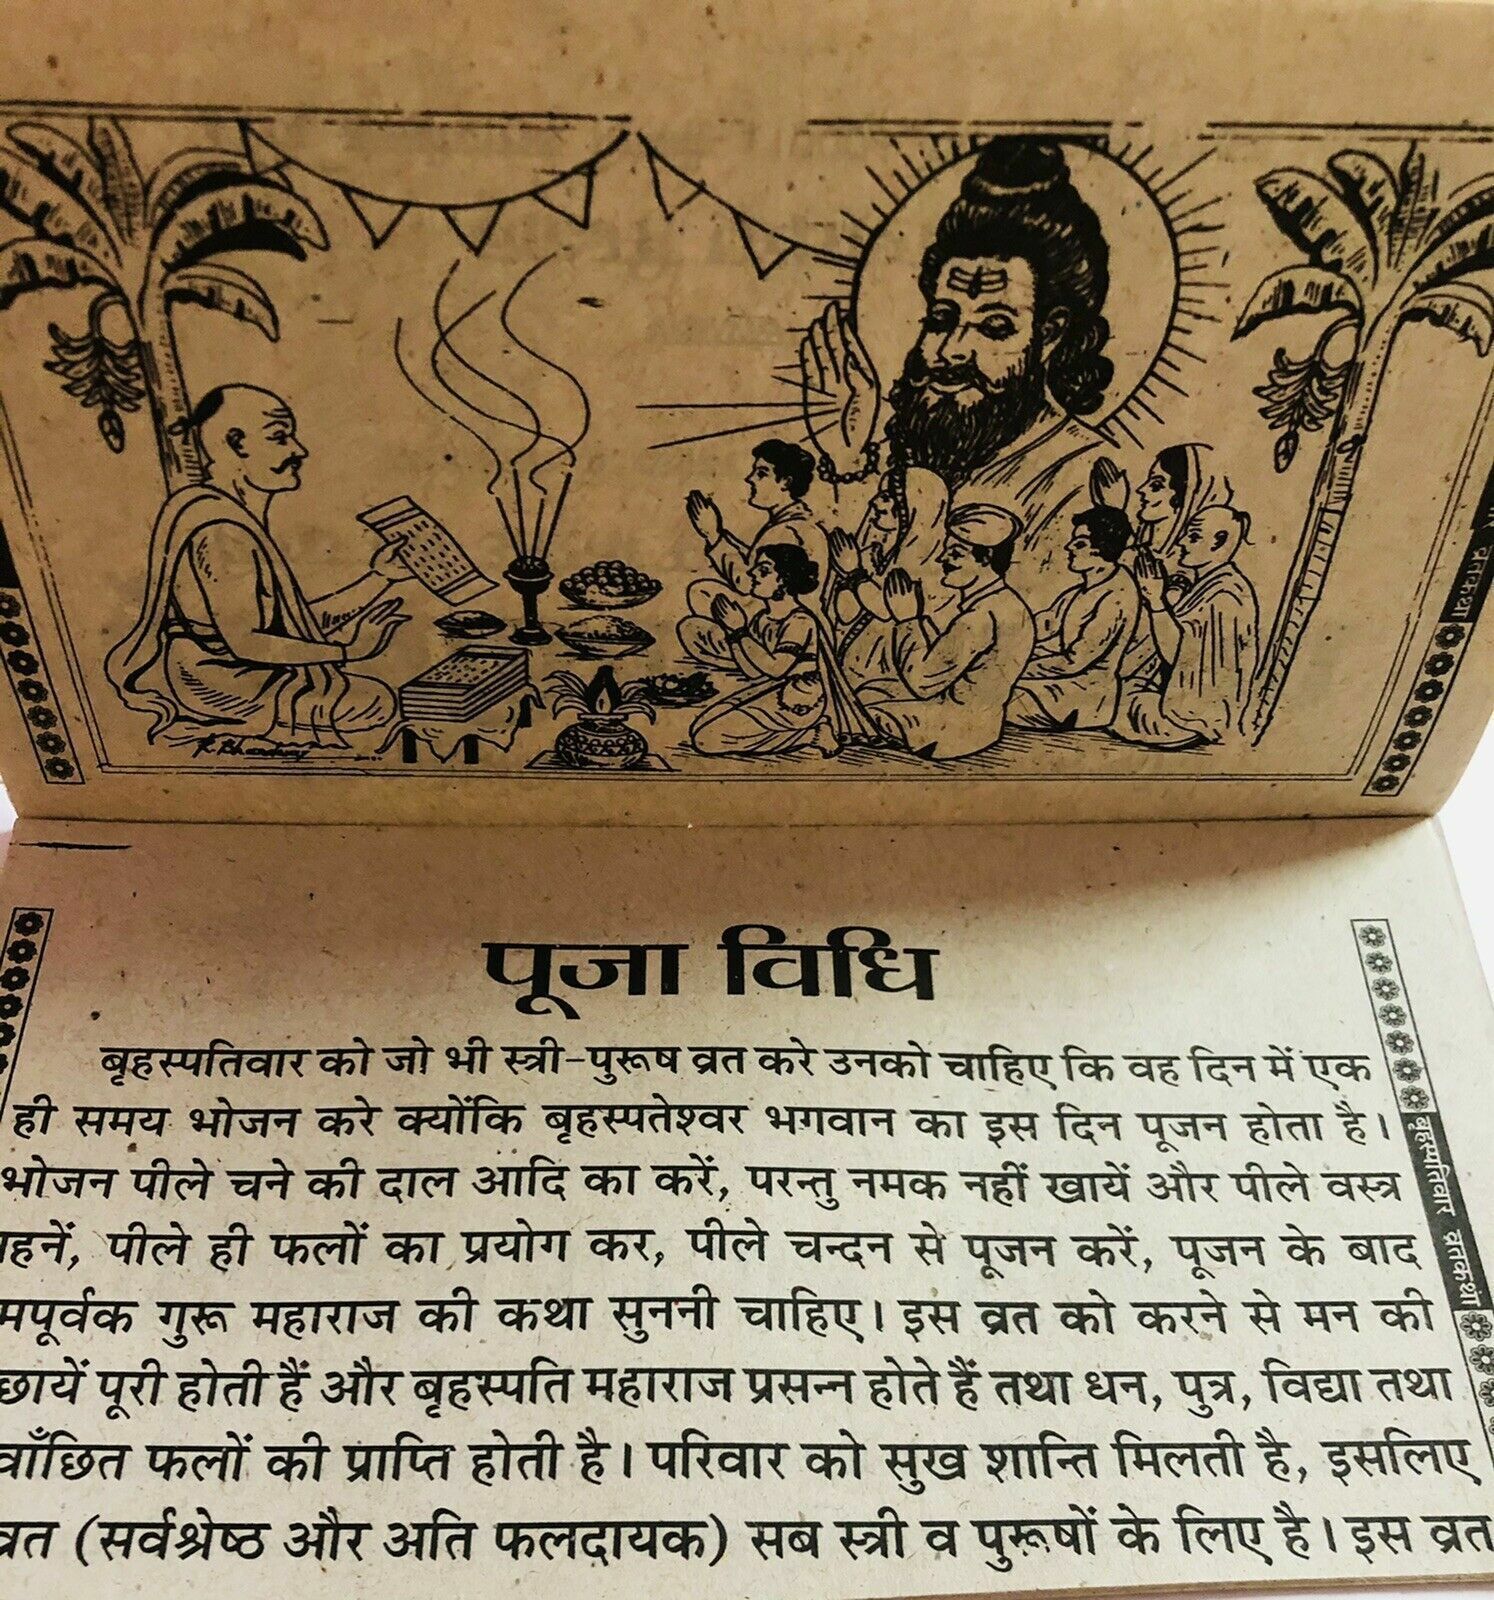 व्रतकथा
K. Bhardwaj
पूजा विधि
बृहस्पतिवार को जो भी स्त्री-पुरूष व्रत करे उनको चाहिए कि वह दिन में एक
ही समय भोजन करे क्योंकि बृहस्पतेश्वर भगवान का इस दिन पूजन होता है।
भोजन पीले चने की दाल आदि का करें, परन्तु नमक नहीं खायें और पीले वस्त्र
हनें, पीले ही फलों का प्रयोग कर, पीले चन्दन से पूजन करें, पूजन के बाद
मपूर्वक गुरू महाराज की कथा सुननी चाहिए। इस व्रत को करने से मन की
छायें पूरी होती हैं और बृहस्पति महाराज प्रसन्न होते हैं तथा धन, पुत्र, विद्या तथा
वाँछित फलों की प्राप्ति होती है। परिवार को सुख शान्ति मिलती है, इसलिए
व्रत (सर्वश्रेष्ठ और अति फलदायक) सब स्त्री व पुरूषों के लिए है। इस व्रत
बृहस्पतिवार व्रतकथा